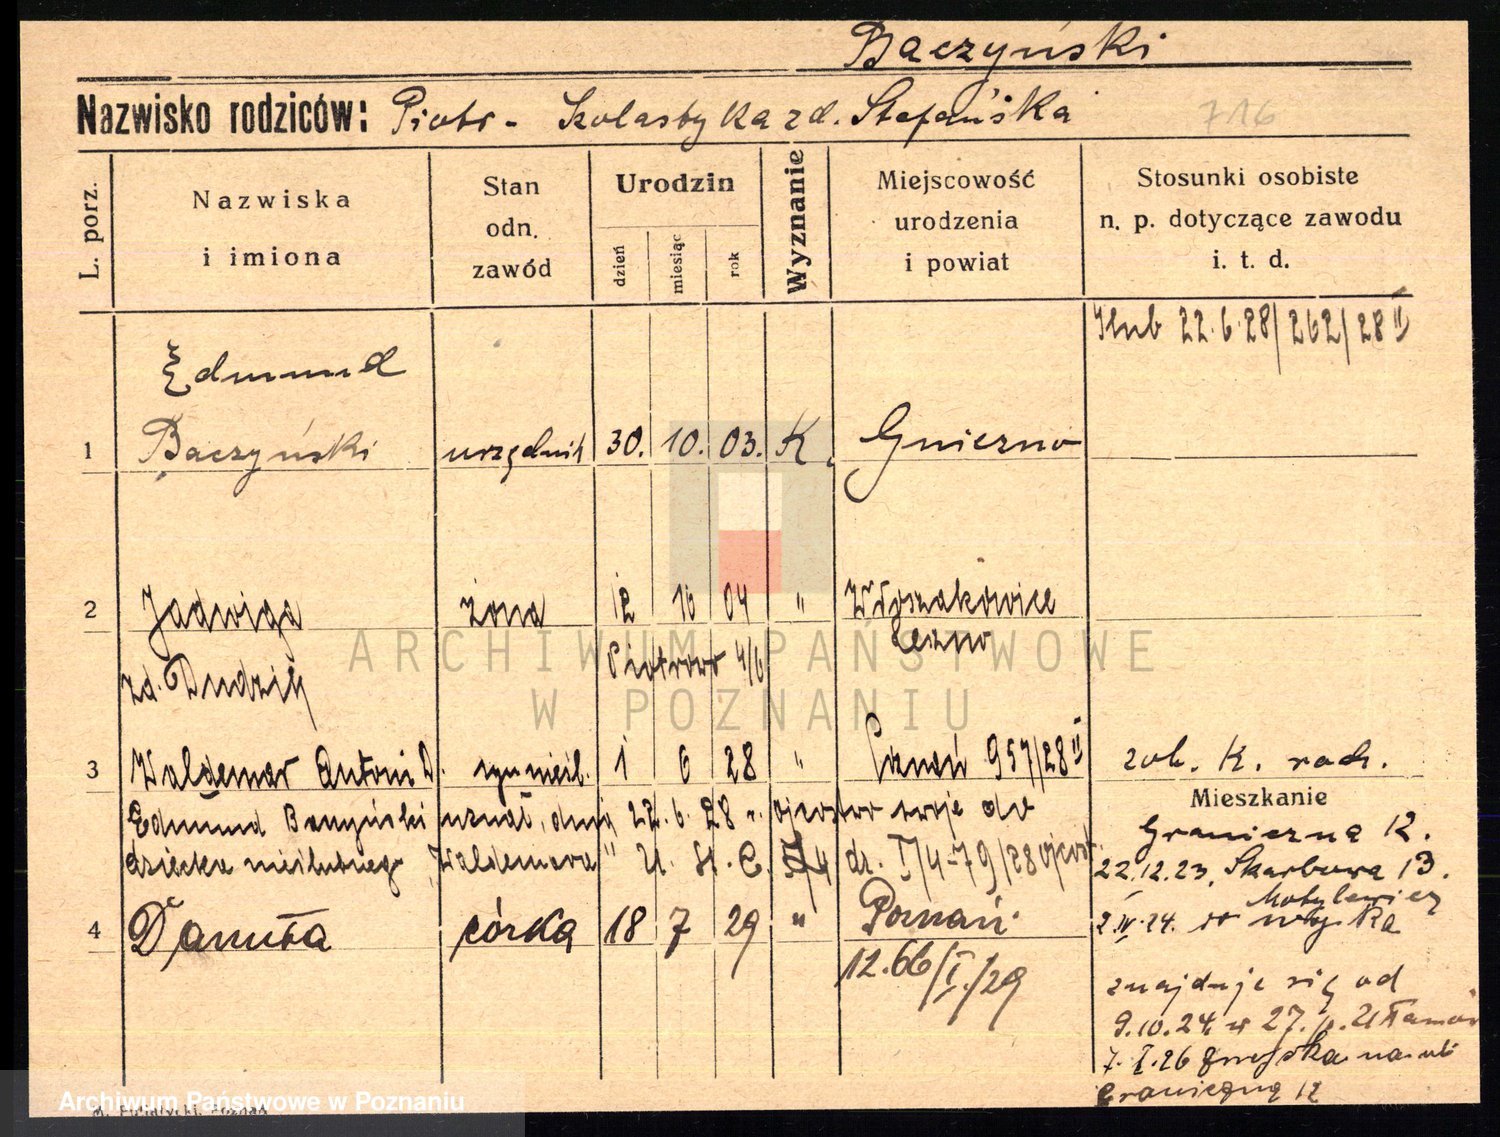 Baczyński
Nazwisko rodziców: Piotr - Skolastyka zd. Stefańska 716
L. porz.
Nazwiska i imiona
Stan odn. zawód
Urodzin
dzień miesiąc rok
Wyznanie
Miejscowość urodzenia i powiat
Stosunki osobiste n. p. dotyczące zawodu i. t. d.
Ślub 22.6.28/262/28 II
Edmund
1 Baczyński urzędnik 30. 10. 03. K Gniezno
2 Jadwiga żona 12 10 04 " Włoszakowice
zd. Dudzik Piotrowo 4/6 Leszno
3 Waldemar Antoni B. syn nieśl. 1 6 28 " Poznań 957/28 II zob. K. rodz.
Edmund Baczyński uznał dnia 22.6.28 r. ojcostwo swoje do
dziecka nieślubnego "Waldemara" U. St. C. dz. I/4-79/28 ojcost.
4 Danuta córka 18 7 29 " Poznań
1266/I/29
Mieszkanie
Graniczna 12.
22.12.23. Skarbowa 13.
Motylewicz
2.IV.24. w wojska
znajduje się od
9.10.24. w 27. p. Ułanów
7.I.26 z wojska na ul.
Graniczną 12
ARCHIWUM PAŃSTWOWE
W POZNANIU
Archiwum Państwowe w Poznaniu